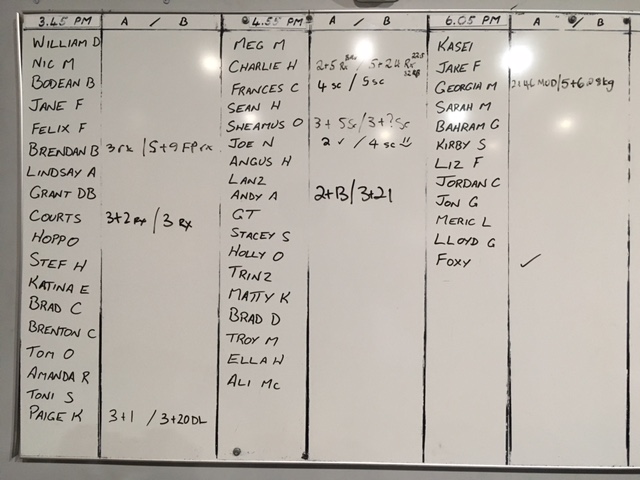 3.45 PM A / B
WILLIAM D
NIC M
BODEAN B
JANE F
FELIX F
BRENDAN B 3rx / 5+9 FP rx
LINDSAY A
GRANT DB
COURTS 3+2 RX / 3 RX
HOPPO
STEF H
KATINA E
BRAD C
BRENTON C
TOM O
AMANDA R
TONI S
PAIGE K 3+1 / 3+20DL
4.55 PM A / B
MEG M
CHARLIE H 2+5 Rx / 5+24 Rx
FRANCES C 4 sc / 5sc
SEAN H
SHEAMUS O 3+5sc / 3+?sc
JOE N 2 ✓ / 4 sc
ANGUS H
LANZ
ANDY A 2+13 / 3+21
GT
STACEY S
HOLLY O
TRINZ
MATTY K
BRAD D
TROY M
ELLA H
ALI MC
6.05 PM A / B
KASEI
JAKE F
GEORGIA M MOD / 5+6
SARAH M
BAHRAM G
KIRBY S
LIZ F
JORDAN C
JON G
MERIC L
LLOYD G
FOXY ✓